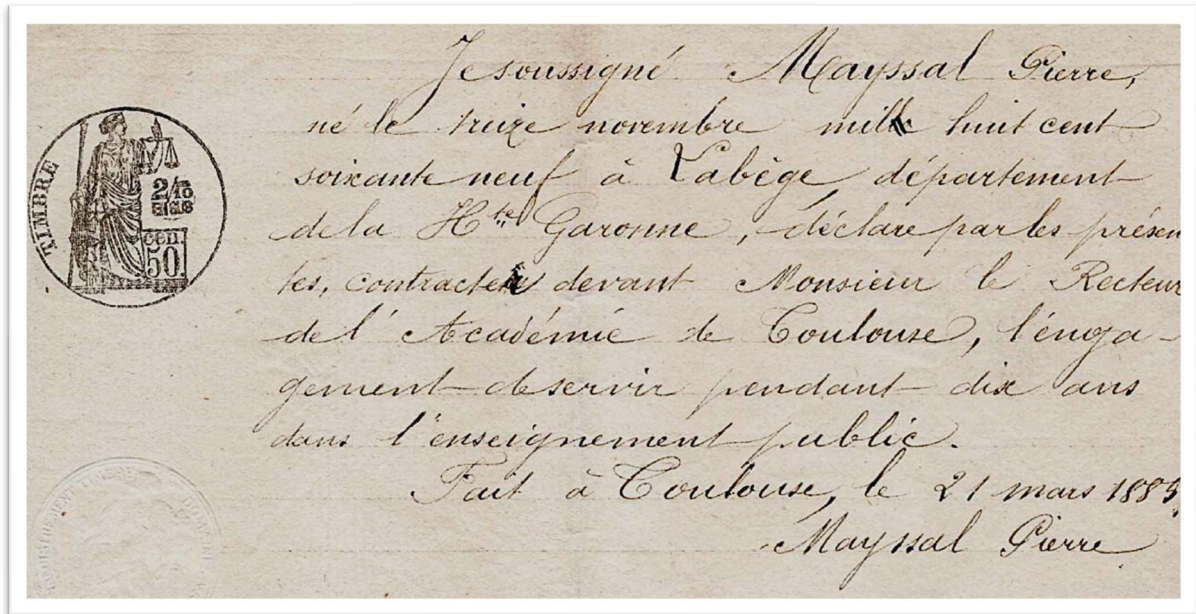 Je soussigné Mayssal Pierre,
né le treize novembre mille huit cent
soixante neuf à Labège, département
de la Hte Garonne, déclare par les présen
tes, contracter devant Monsieur le Recteur
de l'Académie de Toulouse, l'enga-
gement de servir pendant dix ans
dans l'enseignement public.
Fait à Toulouse, le 21 mars 1885
Mayssal Pierre
TIMBRE
2/10
EN SUS
50 CEN.